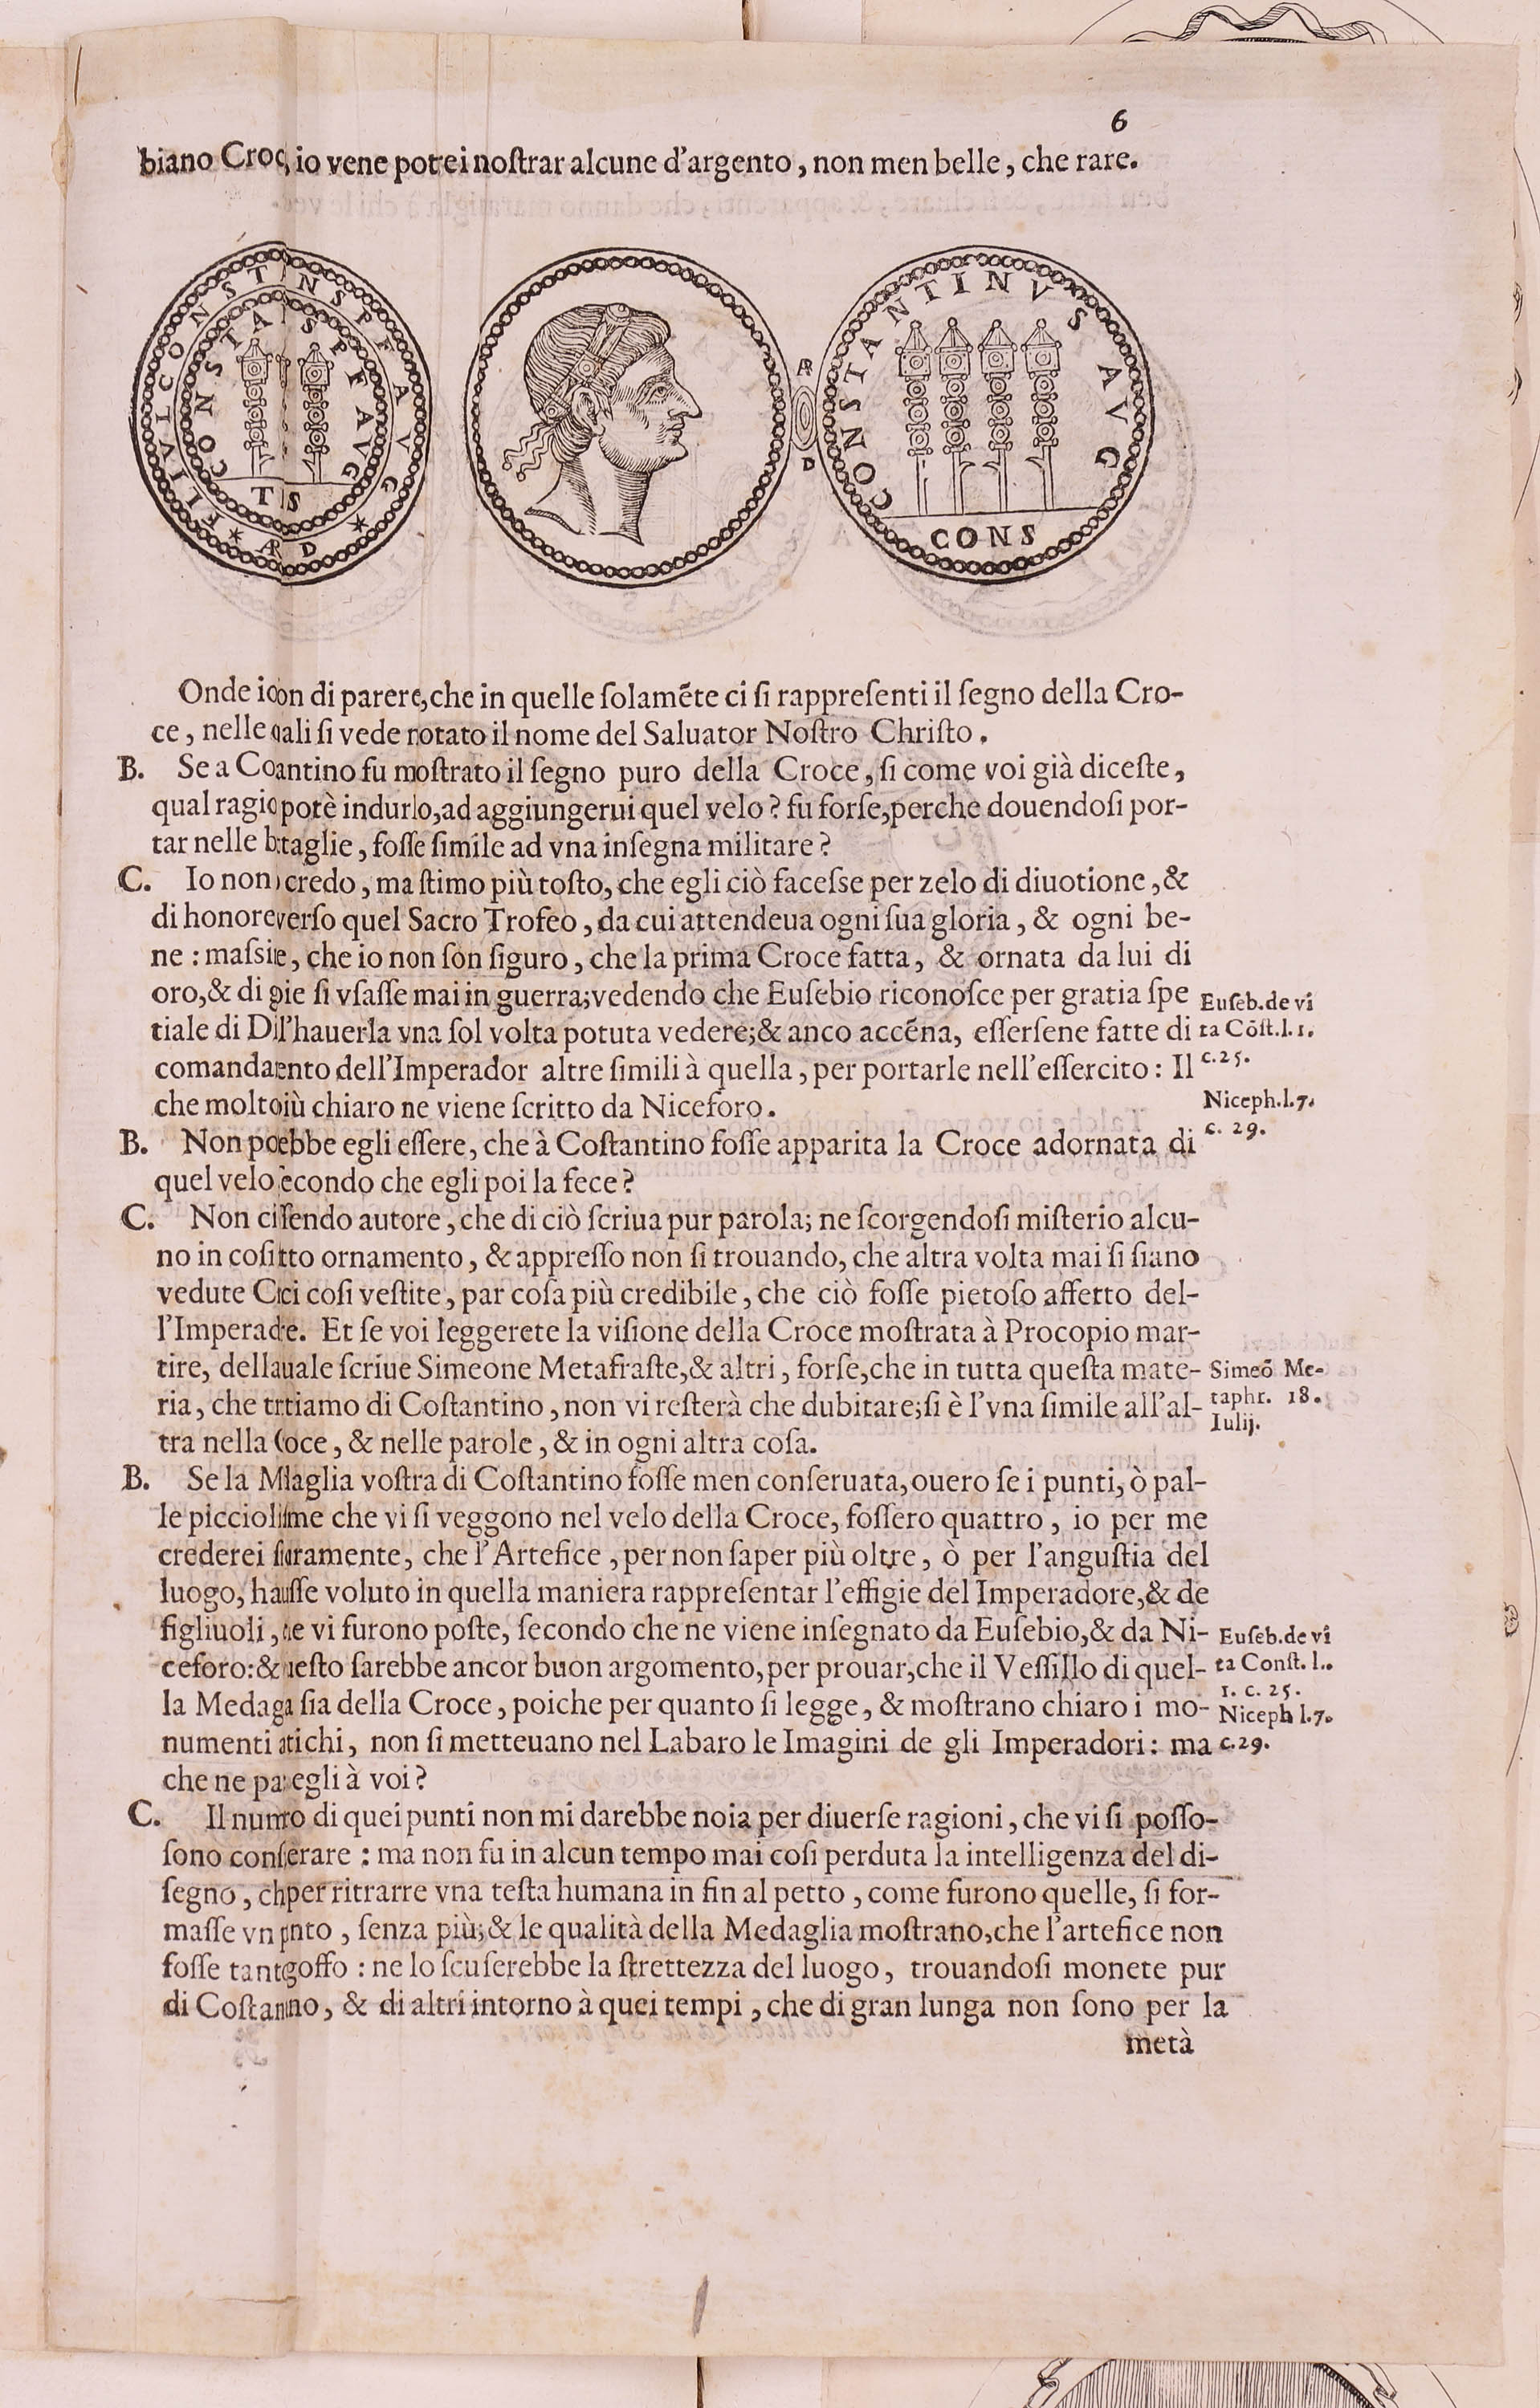 6
biano Croc, io vene potei noſtrar alcune d'argento, non men belle, che rare.
FL IVL CONST NS P F AVG
CONSTA S P F AVG
T S
* AR D *
AR
D
CONSTANTINVS AVG
CONS
Onde io on di parere, che in quelle ſolamẽte ci ſi rappreſenti il ſegno della Cro-
ce, nelle qali ſi vede notato il nome del Saluator Noſtro Chriſto.
B. Se a Coantino fu moſtrato il ſegno puro della Croce, ſi come voi già diceſte,
qual ragio potè indurlo, ad aggiungerui quel velo? fu forſe, perche douendoſi por-
tar nelle btaglie, foſſe ſimile ad vna inſegna militare?
C. Io non credo, ma ſtimo più toſto, che egli ciò faceſse per zelo di diuotione, &
di honore verſo quel Sacro Trofeo, da cui attendeua ogni ſua gloria, & ogni be-
ne: maſsie, che io non ſon ſiguro, che la prima Croce fatta, & ornata da lui di
oro, & di gie ſi vſaſſe mai in guerra; vedendo che Euſebio riconoſce per gratia ſpe
tiale di Di l'hauerla vna ſol volta potuta vedere; & anco accẽna, eſſerſene fatte di
comandaento dell'Imperador altre ſimili à quella, per portarle nell'eſſercito: Il
che molto iù chiaro ne viene ſcritto da Niceforo.
Euſeb. de vi
ta Cõſt. l. 1.
c. 25.
Niceph. l. 7.
c. 29.
B. Non poebbe egli eſſere, che à Coſtantino foſſe apparita la Croce adornata di
quel velo econdo che egli poi la fece?
C. Non ciſendo autore, che di ciò ſcriua pur parola; ne ſcorgendoſi miſterio alcu-
no in coſi tto ornamento, & appreſſo non ſi trouando, che altra volta mai ſi ſiano
vedute Cci coſi veſtite, par coſa più credibile, che ciò foſſe pietoſo affetto del-
l'Imperade. Et ſe voi leggerete la viſione della Croce moſtrata à Procopio mar-
tire, della uale ſcriue Simeone Metafraſte, & altri, forſe, che in tutta queſta mate-
ria, che trtiamo di Coſtantino, non vi reſterà che dubitare; ſi è l'vna ſimile all'al-
tra nella Coce, & nelle parole, & in ogni altra coſa.
Simeõ Me-
taphr. 18.
Iulij.
B. Se la Mlaglia voſtra di Coſtantino foſſe men conſeruata, ouero ſe i punti, ò pal-
le picciolime che vi ſi veggono nel velo della Croce, foſſero quattro, io per me
crederei ſiaramente, che l'Artefice, per non ſaper più oltre, ò per l'anguſtia del
luogo, hauſſe voluto in quella maniera rappreſentar l'effigie del Imperadore, & de
figliuoli, e vi furono poſte, ſecondo che ne viene inſegnato da Euſebio, & da Ni-
ceforo: & ueſto ſarebbe ancor buon argomento, per prouar, che il Veſſillo di quel-
la Medaga ſia della Croce, poiche per quanto ſi legge, & moſtrano chiaro i mo-
numenti atichi, non ſi metteuano nel Labaro le Imagini de gli Imperadori: ma
che ne pa egli à voi?
Euſeb. de vi
ta Conſt. l..
1. c. 25.
Niceph l. 7.
c. 29.
C. Il numro di quei punti non mi darebbe noia per diuerſe ragioni, che vi ſi poſſo-
ſono conſerare: ma non fu in alcun tempo mai coſi perduta la intelligenza del di-
ſegno, ch per ritrarre vna teſta humana in fin al petto, come furono quelle, ſi for-
maſſe vn pnto, ſenza più; & le qualità della Medaglia moſtrano, che l'artefice non
foſſe tant goffo: ne lo ſcuſerebbe la ſtrettezza del luogo, trouandoſi monete pur
di Coſtanno, & di altri intorno à quei tempi, che di gran lunga non ſono per la
metà